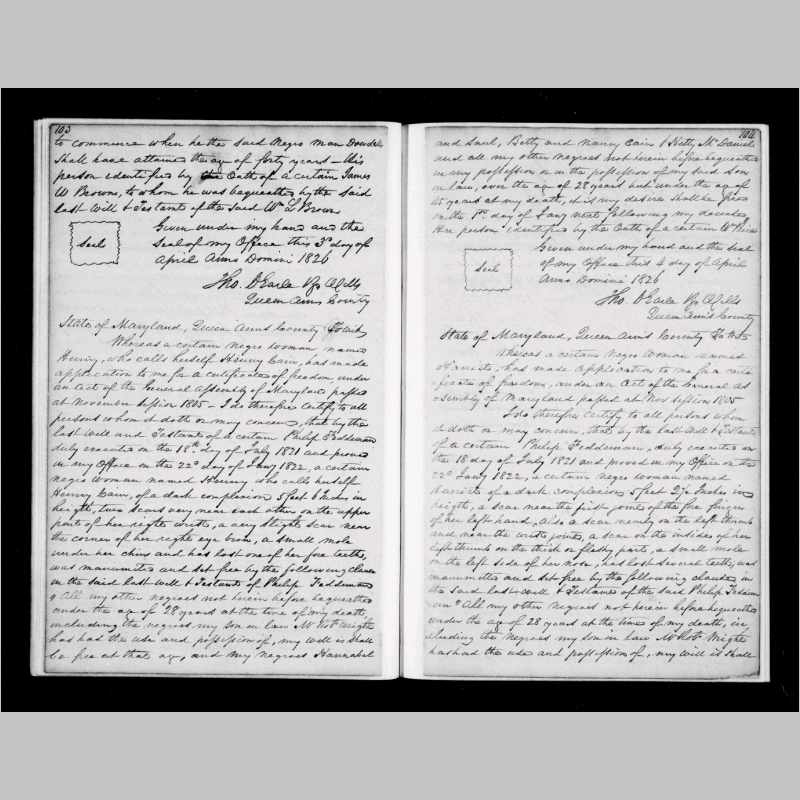 103
to commence when he the said Negro man
Shall have attained the age of forty years – this
person identified by the Oath of a certain James
W Brown, to whom he was bequeathed by the said
last Will & Testament of the said Wm Brown
Seal
Given under my hand and the
Seal of my Office this 3d day of
April Anno Domini 1826
Tho. C Earle Rgr Wills
Queen Anns County
State of Maryland, Queen Anns County Towit
Whereas a certain negro woman named
Henny, who calls herself Henny Cain, has made
application to me for a certificate of freedom, under
an Act of the General Assembly of Maryland passed
at November session 1805 – I do therefore certify to all
persons whom it doth or may concern, that by the
last Will and Testament of a certain Philip Feddeman
duly executed on the 18th day of July 1821 and proved
in my Office on the 22d day of Jany 1822, a certain
negro woman named Henny who calls herself
Henny Cain, of a dark complexion 5 feet 6 Inches in
height, two scars very near each other on the upper
part of her right wrist, a very slight scar near
the corner of her right eye brow, a small mole
under her chin and has lost one of her fore teeth,
was manumitted and set free by the following clause
in the said last Will & Testament of Philip Feddeman
"All my other negroes not herein before bequeathed
under the age of 28 years at the time of my death
including the negroes my son in law Mr Robt Wright
has had the use and possession of, my will is shall
be free at that age, and my negroes Hannibal
104
and Saul, Betty and Nancy Cain & Kitty McDaniel
and all my other negroes not herein before bequeathed
in my possession or in the possession of my said son
in law, over the age of 28 years but under the age of
45 years at my death, it is my desire shall be free
on the 1st day of Jany next following my decease
Her person identified by the Oath of a certain Wm
Seal
Given under my hand and the seal
of my Office this 4 day of April
Anno Domini 1826
Tho. C Earle Rgr Wills
Queen Ann's County
State of Maryland, Queen Ann's County To Wit
Whereas a certain Negro Woman named
Harriett, has made application to me for a certi
ficate of freedom, under an Act of the General As
sembly of Maryland passed at Nov session 1805
I do therefore certify to all persons whom
it doth or may concern, that by the last Will & Testament
of a certain Philip Feddeman, duly executed on
the 18 day of July 1821 and proved in my Office on the
22d Jany 1822, a certain negro woman named
Harriett of a dark complexion 5 feet 2½ Inches in
height, a scar near the first joint of the fore finger
of her left hand, also a scar nearly on the left thumb
and near the wrist joint, a scar on the inside of her
left thumb on the thick or fleshy part, a small mole
on the left side of her nose, has lost several teeth, was
manumitted and set free by the following clause in
the said last Will & Testament of the said Philip Feddem
an "All my other negroes not herein before bequeathed
under the age of 28 years at the time of my death, in
cluding the negroes my son in law Mr Robt Wright
has had the use and possession of, my will is shall